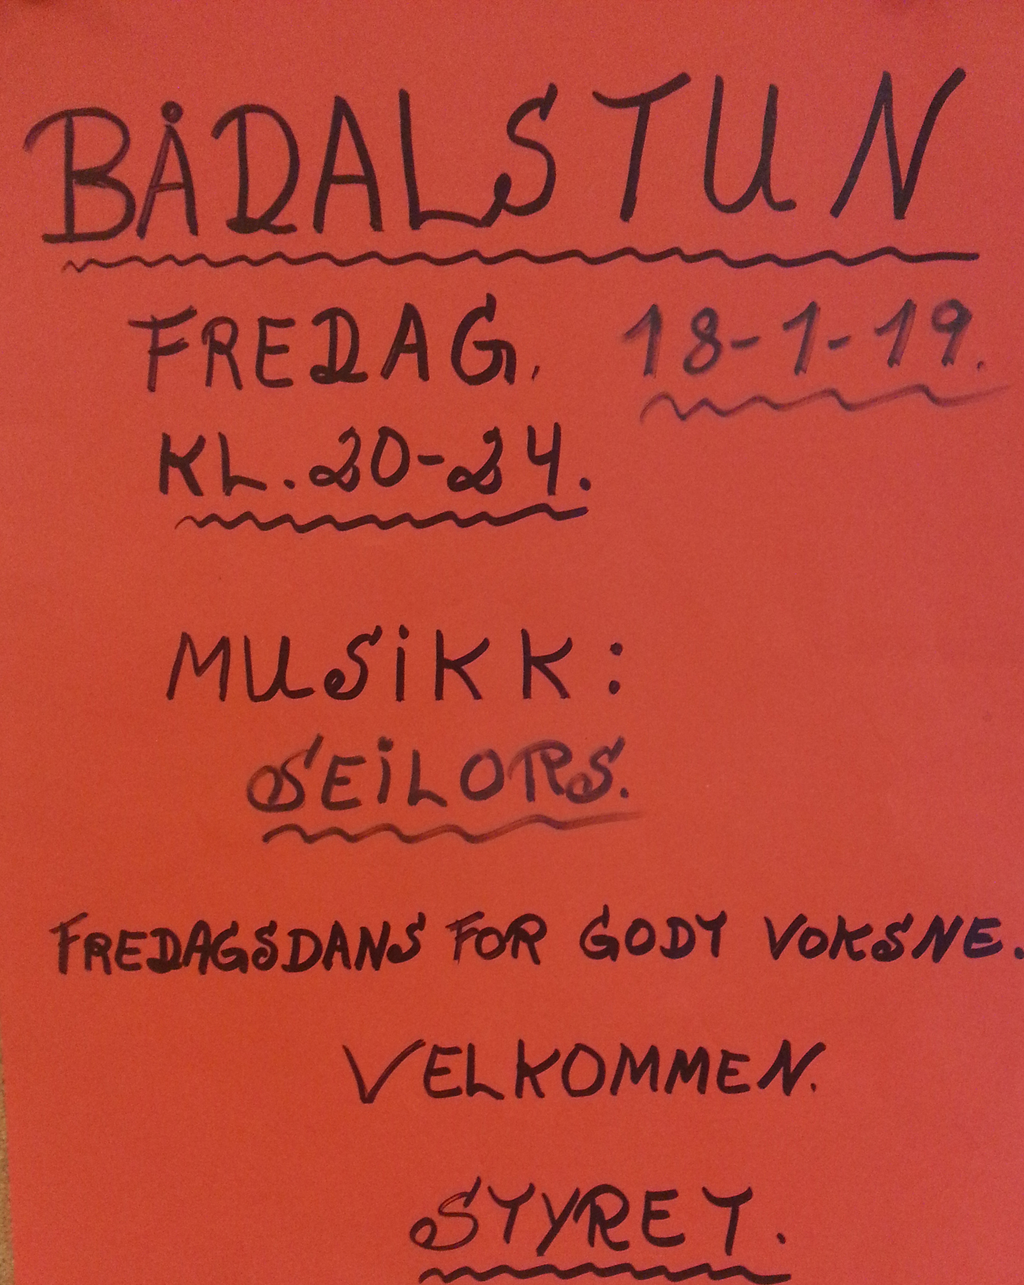 BÅDALSTUN
FREDAG. 18-1-19.
KL. 20-24.
MUSIKK:
SEILORS.
FREDAGSDANS FOR GODT VOKSNE.
VELKOMMEN.
STYRET.